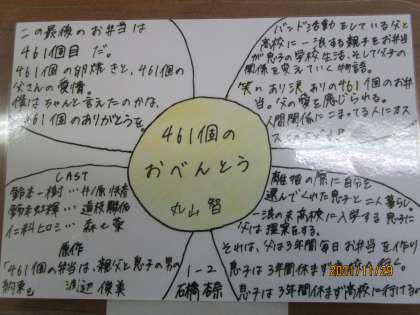 この最後のお弁当は
461個目だ。
461個の卵焼きと、461個の
父さんの愛情。
僕はちゃんと言えたのかな、
461個のありがとうを。
バンド活動をしている父と
高校に一浪する親子をお弁当
が息子の学校生活、そして父子の
関係を変えていく物語。
笑いあり涙ありの461個のお弁
当。父の愛を感じられる。
人間関係にこまってる人にオス
461個の
おべんとう
丸山 智
CAST
鈴本一樹…井ノ原快彦
鈴本虹輝…道枝駿佑
仁科ヒロシ…森七菜
原作
「461個の弁当は、親父と息子の男の
約束。」渡辺俊美
1-2
石橋
離婚の際に自分を
選んでくれた息子と二人暮らし。
一浪の末高校に入学する息子に
父は提案をする。
それは、父は3年間毎日お弁当を作り
息子は3年間休まず
2021/11/29
息子は3年間休まず高校に行けるか